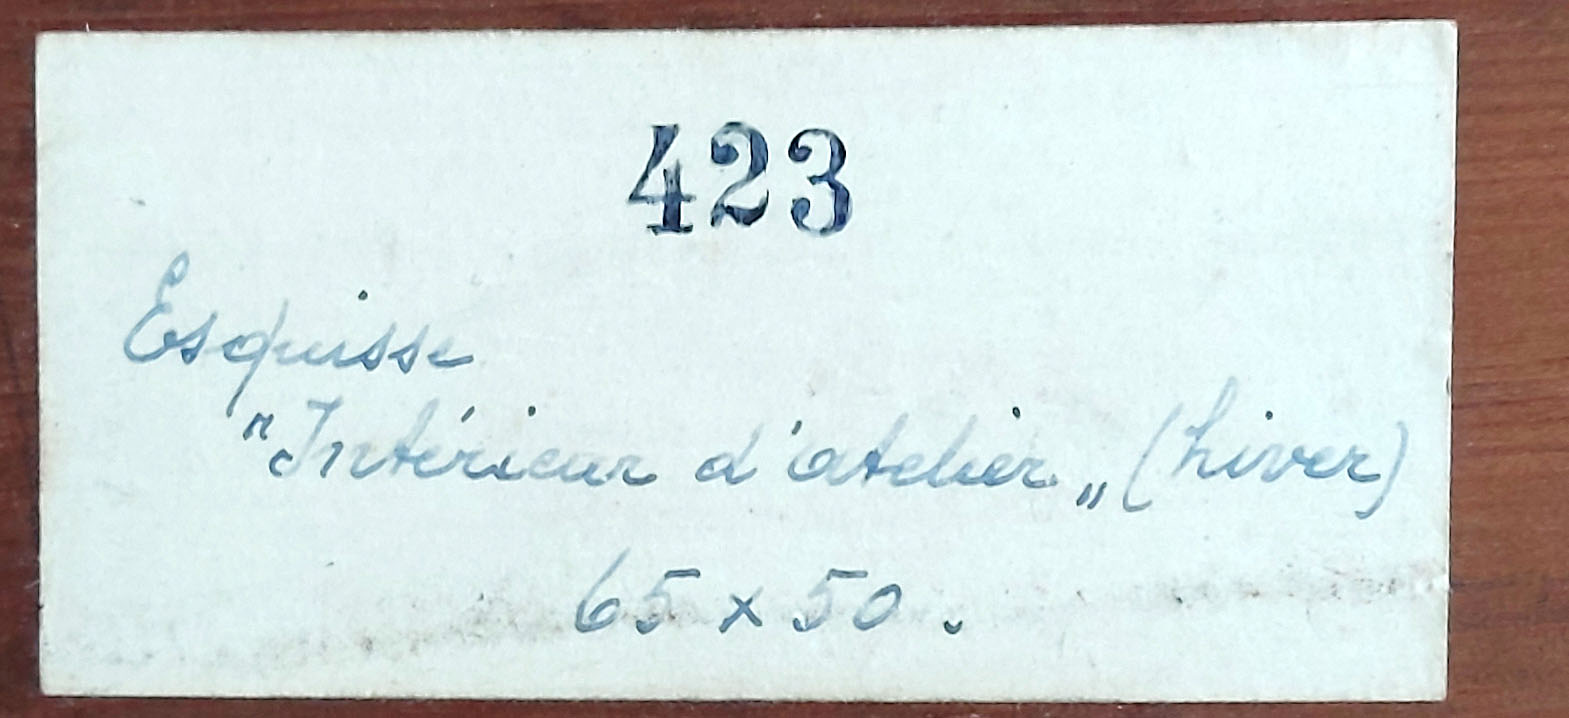 423
Esquisse
"Intérieur d'atelier„ (hiver)
65 x 50.